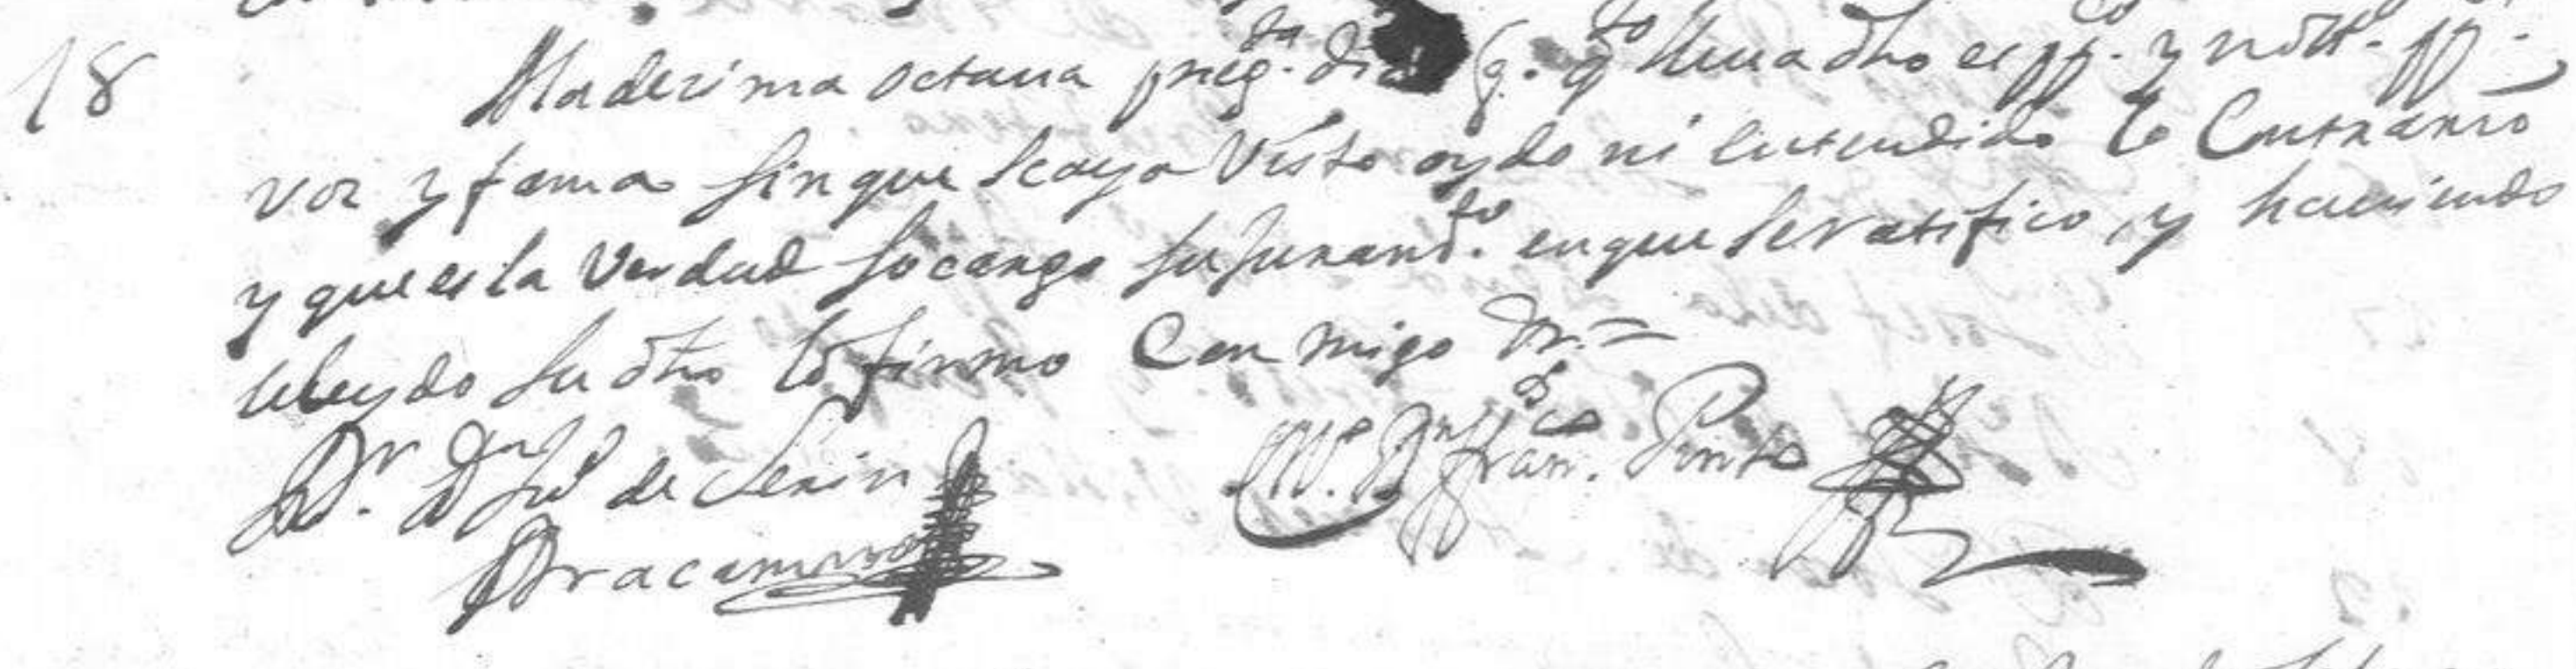 18 A la dezima octaua preg.ta dixo q. q.to lleua dho es pp.co y nott.o pp.ca
voz y fama sin que se aya visto oydo ni entendido lo Contrario
y que es la verdad so cargo su Juramd.to en que se ratifico, y haviendo
le leydo su dho lo firmo Con migo Dr.=
Dr. Dn Jph de Serin Bracamonte
M.e Bn. Fran.co Pinto